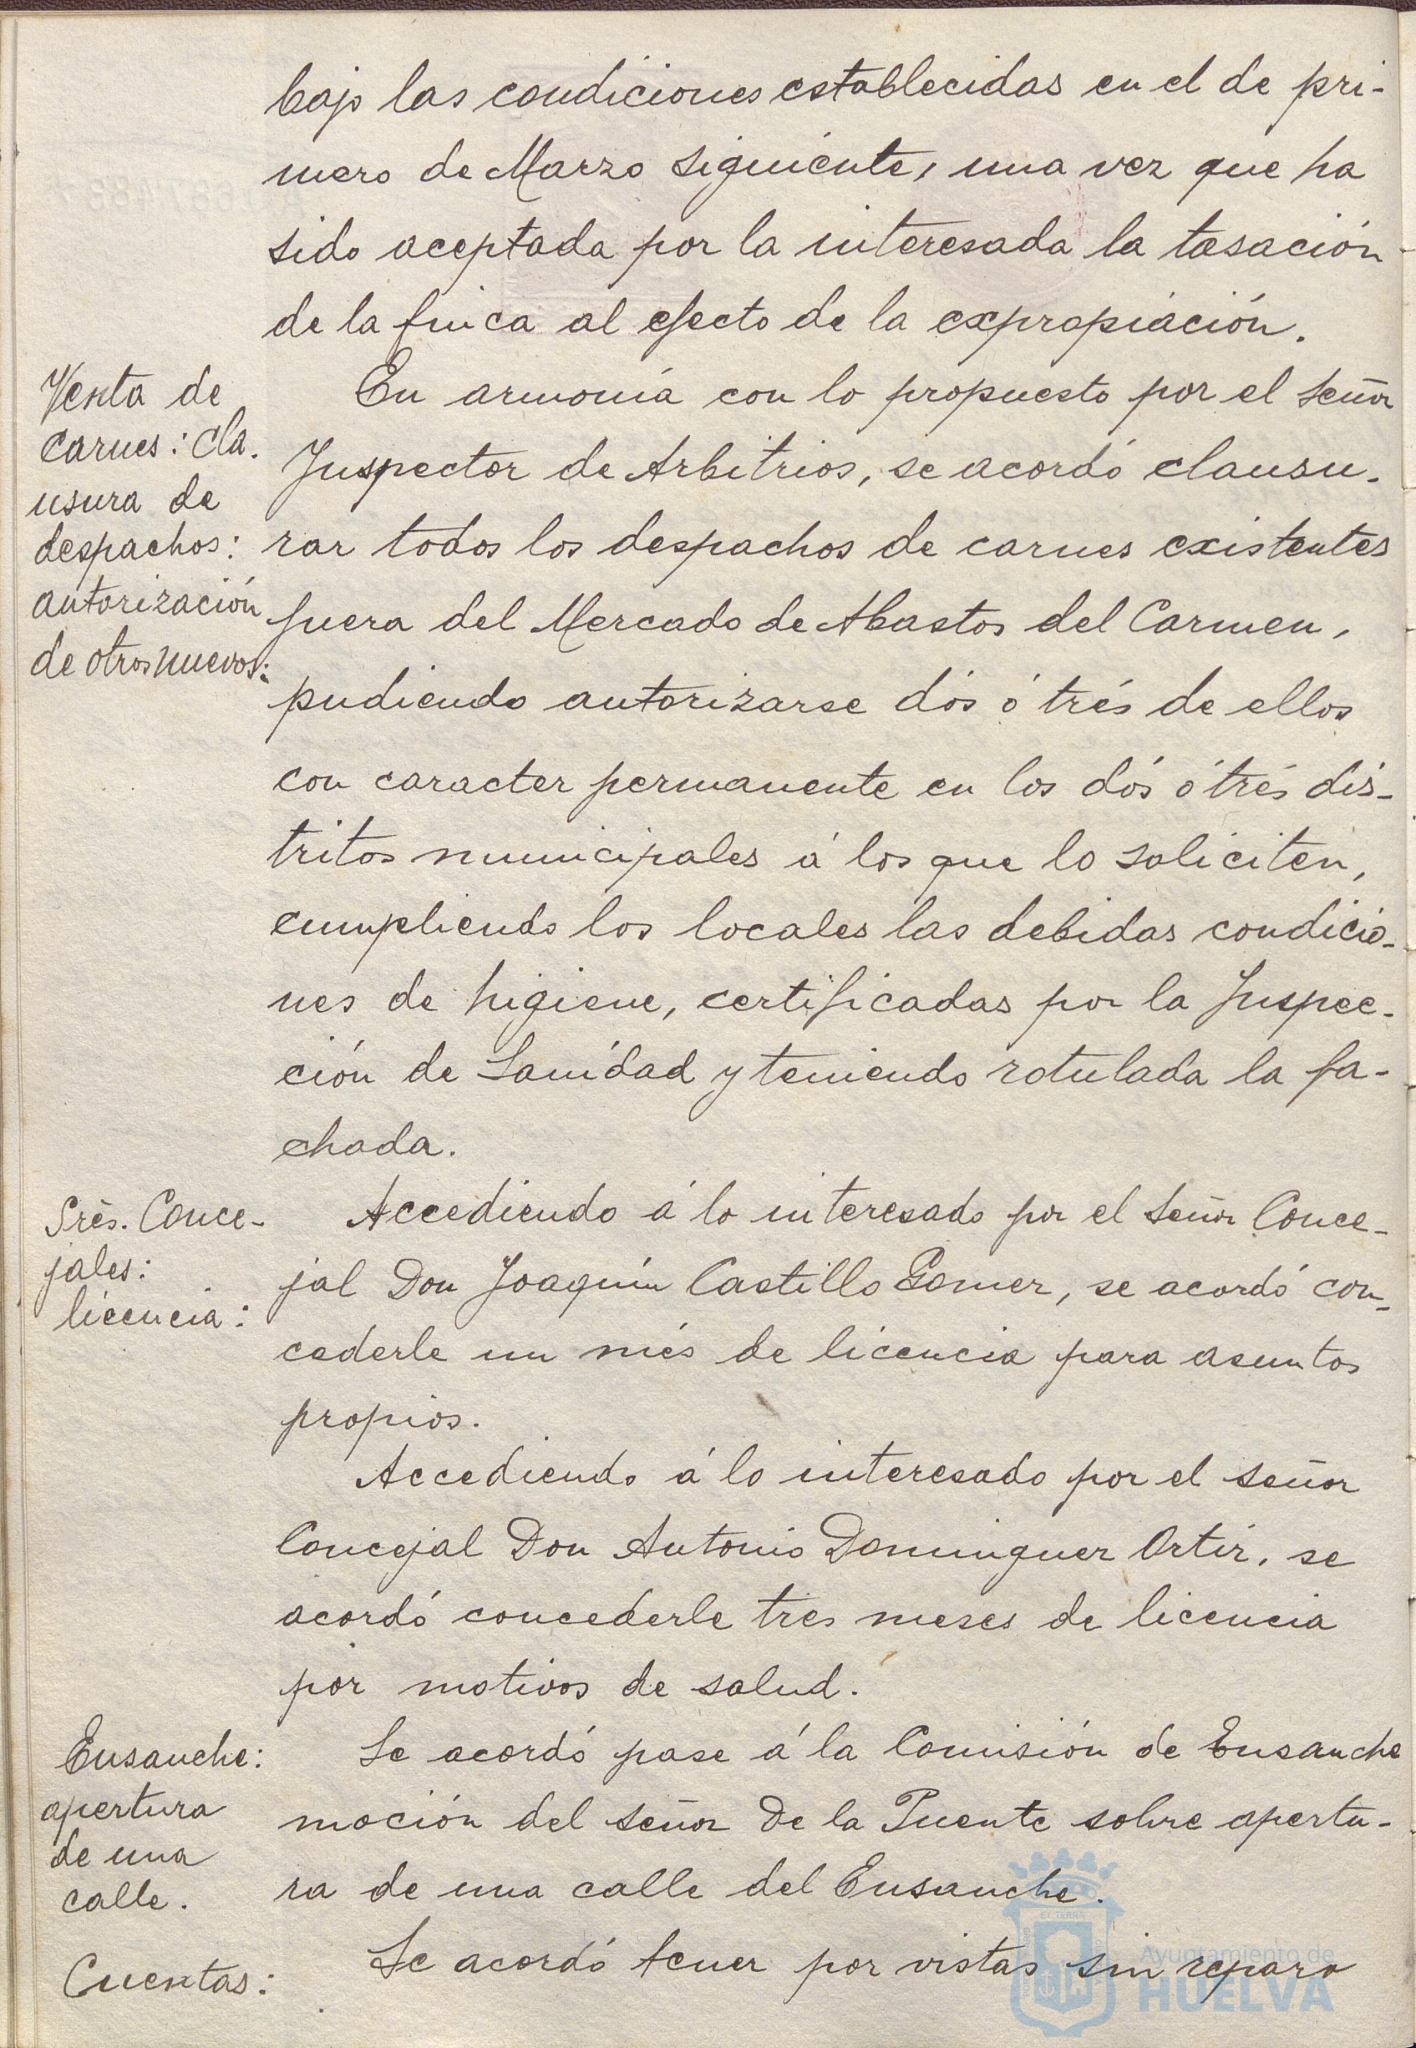 bajo las condiciones establecidas en el de pri-
mero de Marzo siguiente, una vez que ha
sido aceptada por la interesada la tasación
de la finca al efecto de la expropiación.
Venta de
carnes: cla-
usura de
despachos:
autorización
de otros nuevos:
En armonía con lo propuesto por el señor
Inspector de Arbitrios, se acordó clausu-
rar todos los despachos de carnes existentes
fuera del Mercado de Abastos del Carmen,
pudiendo autorizarse dós ó trés de ellos
con caracter permanente en los dós ó trés dis-
tritos municipales á los que lo soliciten,
cumpliendo los locales las debidas condicio-
nes de higiene, certificadas por la Inspec-
ción de Sanidad y teniendo rotulada la fa-
chada.
Srés. Conce-
jales:
licencia:
Accediendo á lo interesado por el señor Conce-
jal Don Joaquín Castillo Gomez, se acordó con-
cederle un més de licencia para asuntos
propios.
Accediendo á lo interesado por el señor
Concejal Don Antonio Dominguez Ortiz, se
acordó concederle tres meses de licencia
por motivos de salud.
Ensanche:
apertura
de una
calle.
Se acordó pase á la Comisión de Ensanche
moción del señor De la Puente sobre apertu-
ra de una calle del Ensanche.
Cuentas:
Se acordó tener por vistas sin reparo
Ayuntamiento de
HUELVA